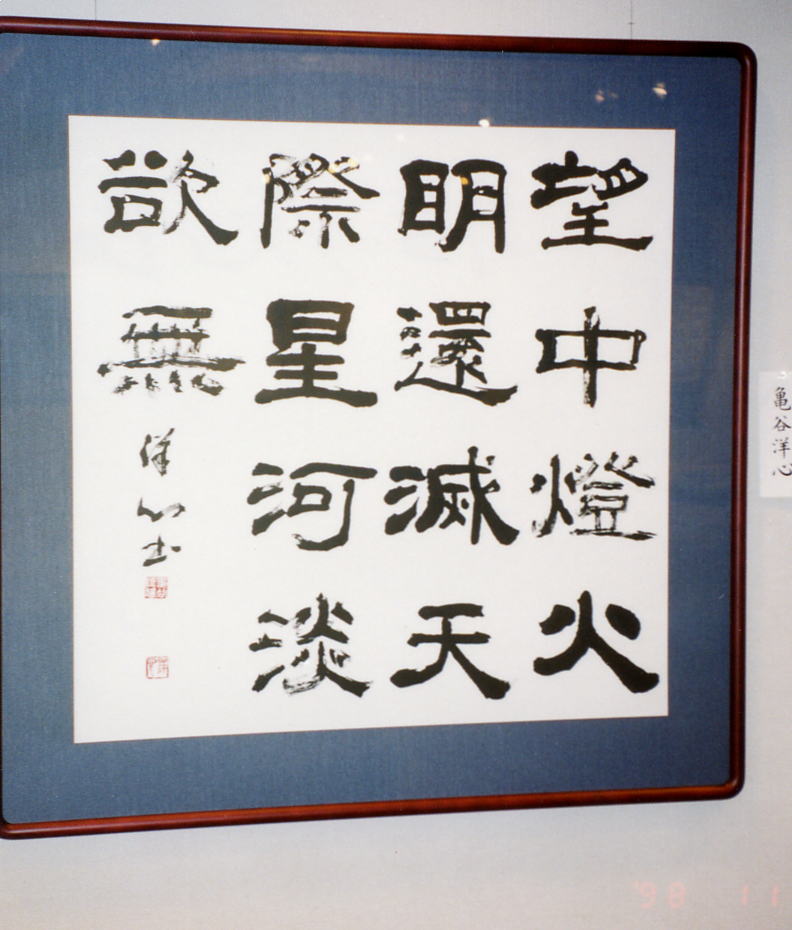 望中燈火
明還滅天
際星河淡
欲無
洋心書
亀谷洋心
'98 11